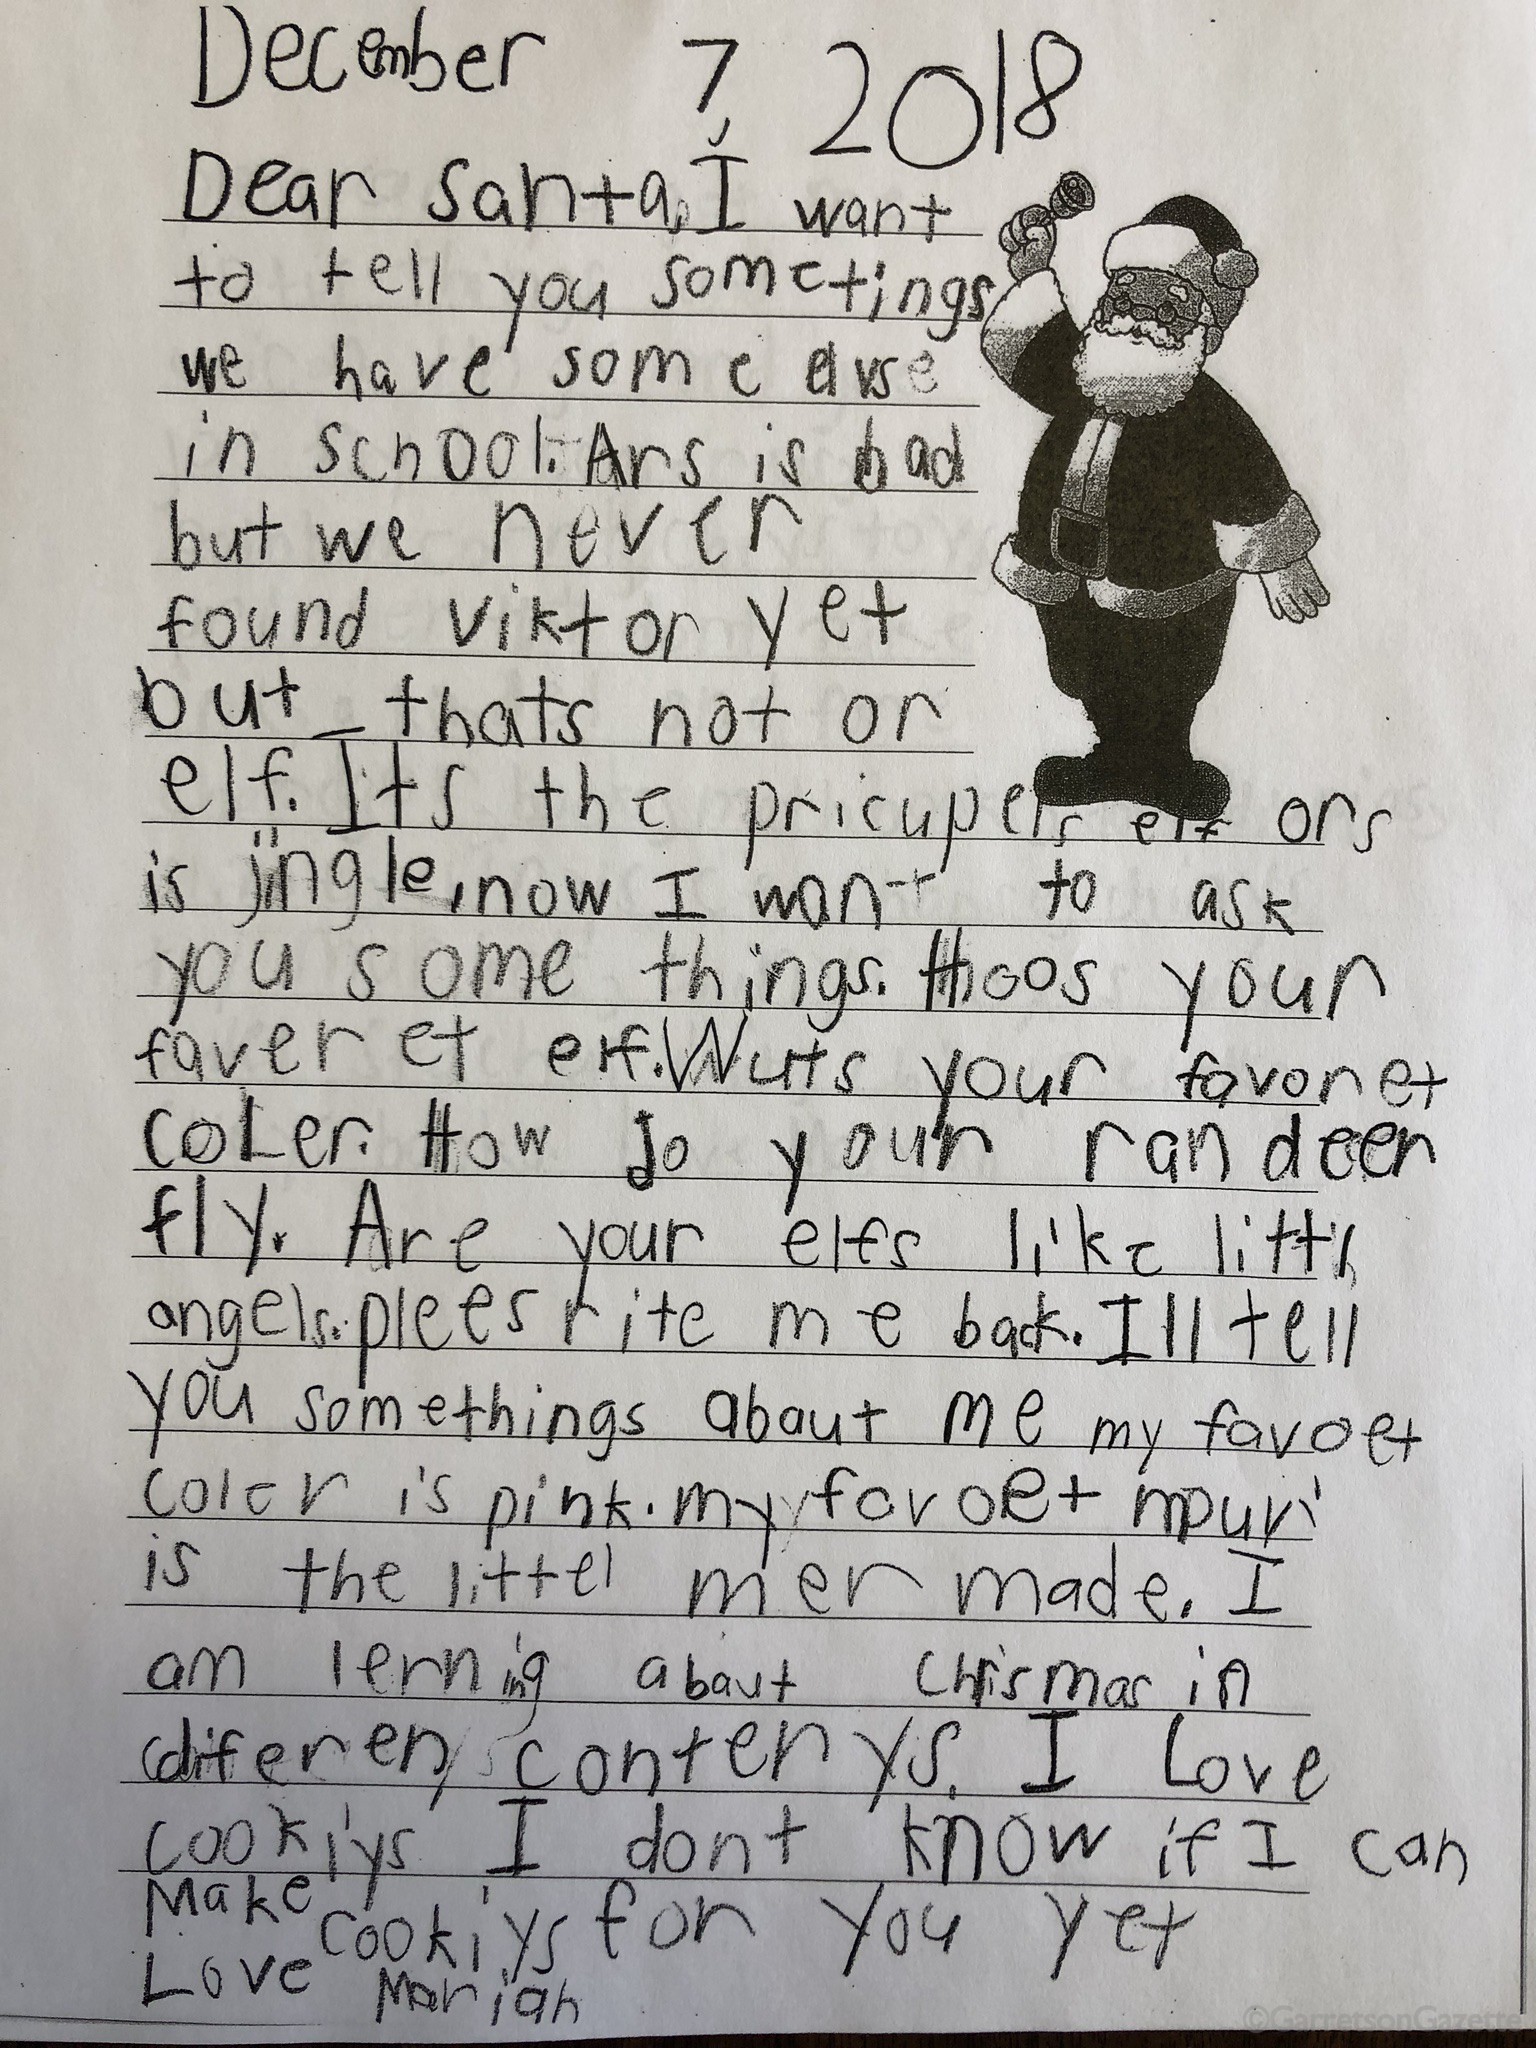 December 7, 2018
Dear Santa, I want
to tell you sometings
we have some elvse
in school. Ars is bad
but we never
found viktor yet
but thats not or
elf. Its the pricupels elf ors
is jingle, now I want to ask
you some things. Hoos your
faveret elf. Wuts your favoret
coler. How do your randeer
fly. Are your elfs like littl
angels. plees rite me back. I'll tell
you somethings abaut me my favoet
coler is pink. my favoet mpuvi
is the littel mermade. I
am lerning abaut Chrismas in
diferen contenys. I Love
cookiys I dont know if I can
Make cookiys for you yet
Love Mariah
©GarretsonGazette